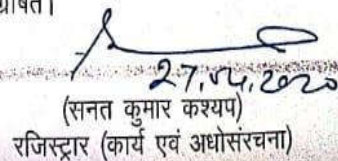 27.04.2020
(सनत कुमार कश्यप)
रजिस्ट्रार (कार्य एवं अधोसंरचना)